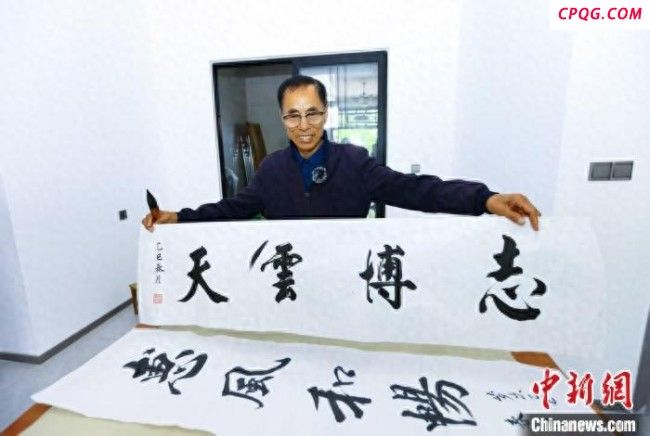 CPQG.COM
志博雲天
乙巳 月
惠風和暢
中新网
Chinanews.com